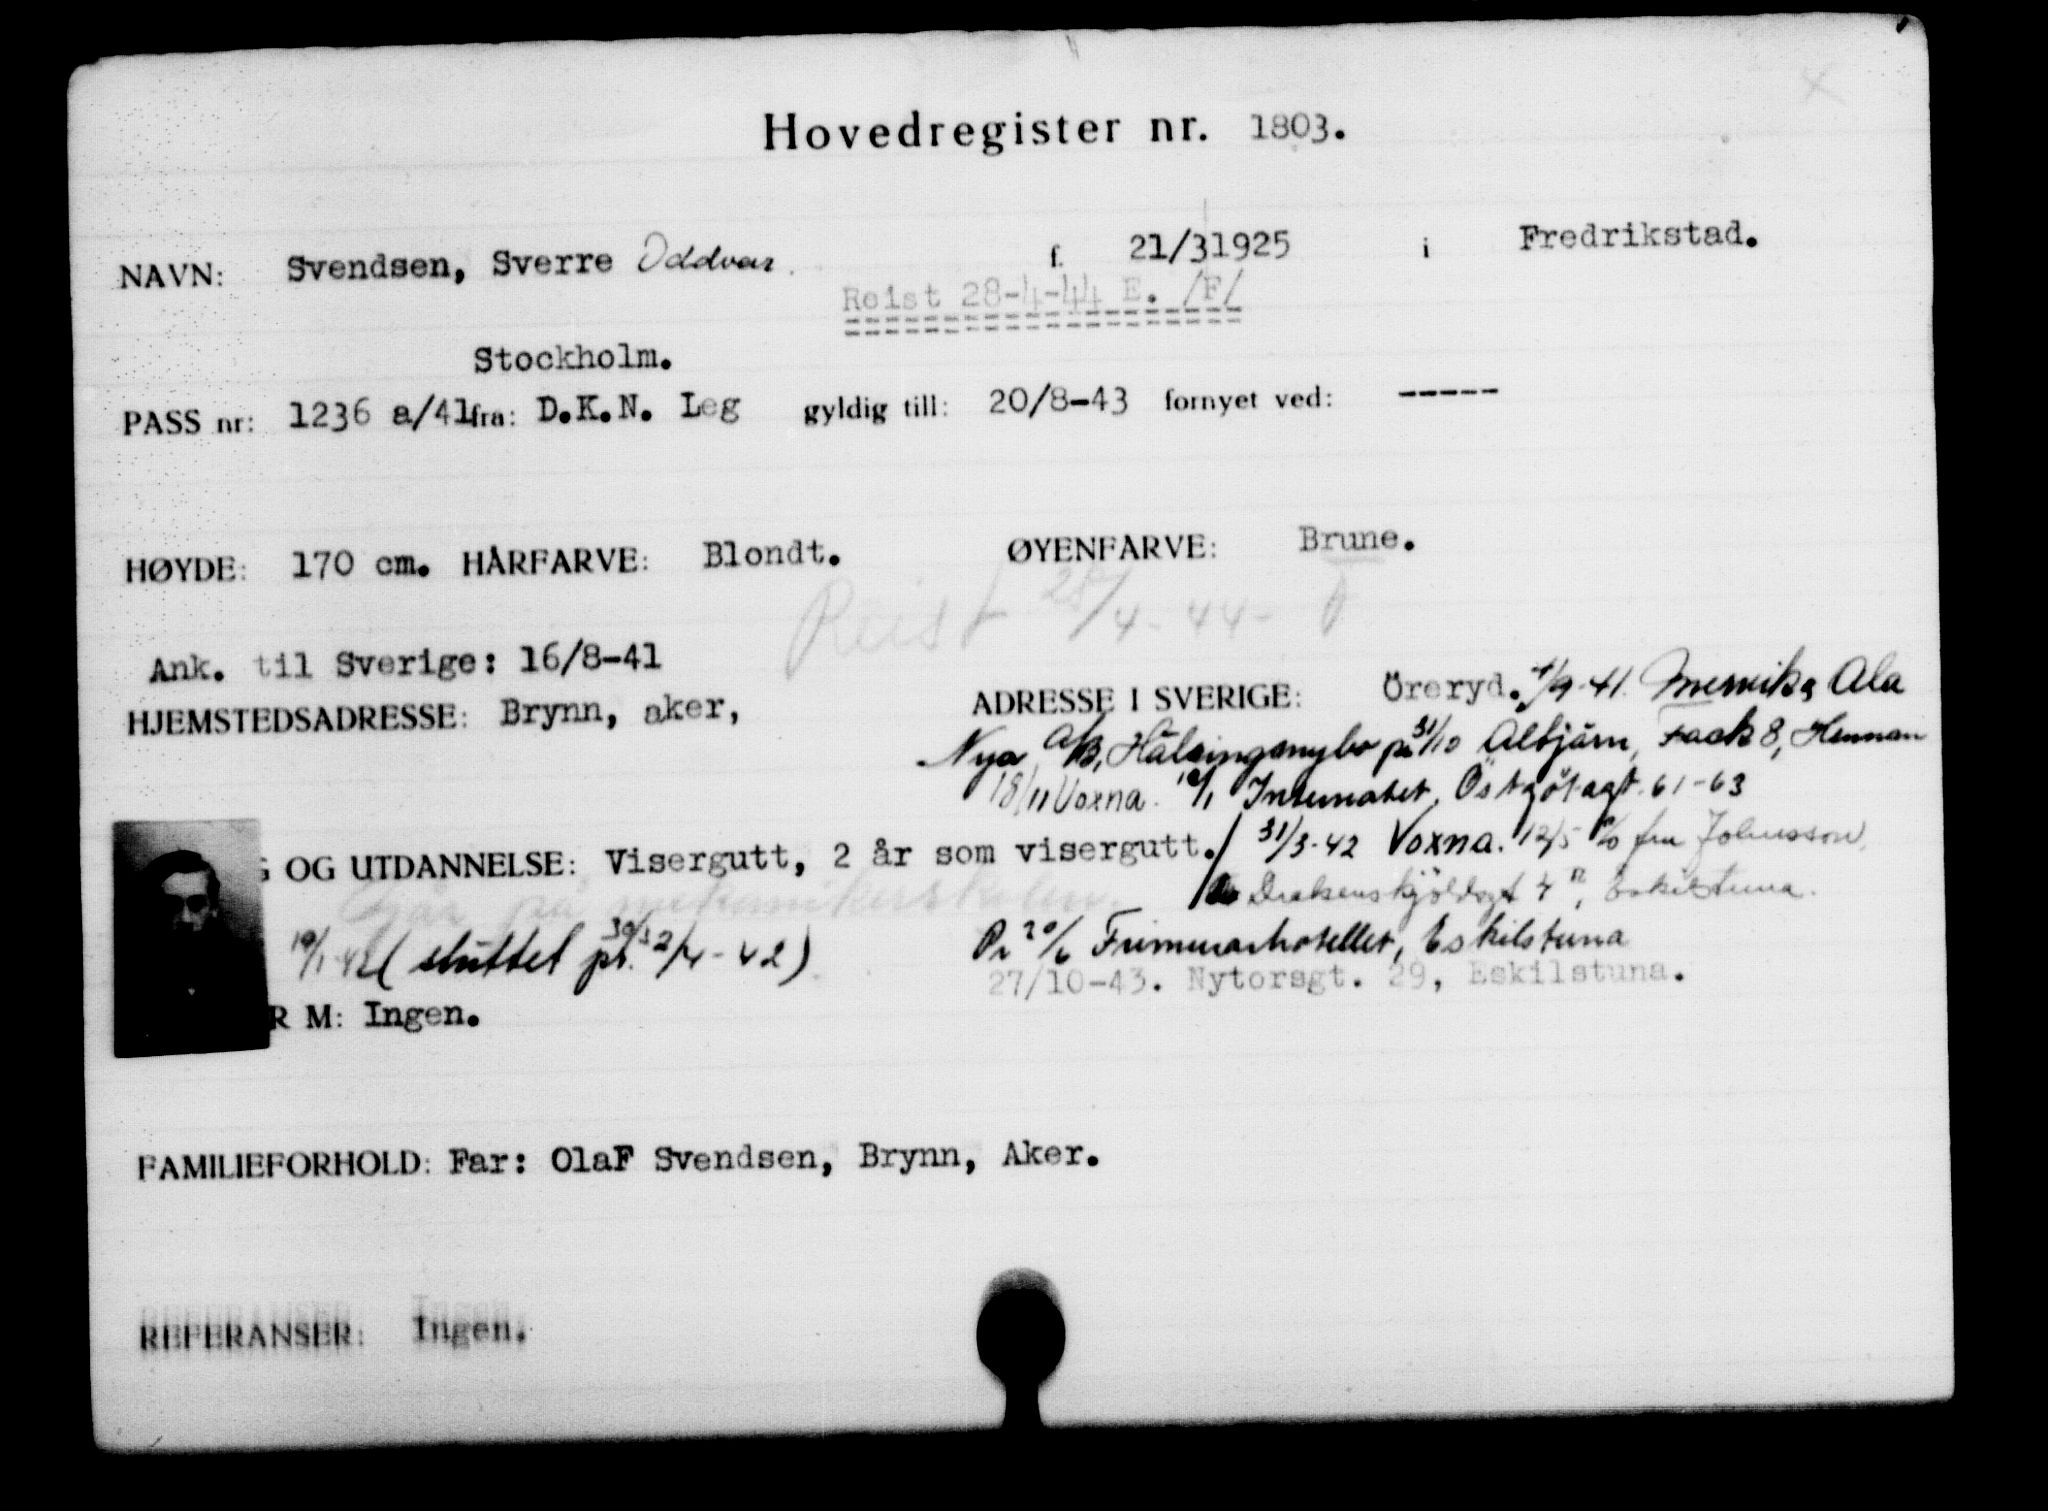 Hovedregister nr. 1803.
NAVN: Svendsen, Sverre Oddvar. f. 21/31925 i Fredrikstad.
Reist 28-4-44 E. /F/
Stockholm.
PASS nr: 1236 a/41 fra: D.K.N. Leg gyldig till: 20/8-43 fornyet ved: -----
HØYDE: 170 cm. HÅRFARVE: Blondt. ØYENFARVE: Brune.
Reist 28/4-44-
Ank. til Sverige: 16/8-41
HJEMSTEDSADRESSE: Brynn, aker,
ADRESSE I SVERIGE: Öreryd. /9-41. Ala
Nya A/B, Hälsingenybo pr 31/10 Altjärn, Fack 8, Hennan
18/11 Voxna. 12/1 Internatet, Östgötagt. 61-63
G OG UTDANNELSE: Visergutt, 2 år som visergutt./ 31/3-42 Voxna. 12/5 c/o fru Johnsson,
Går på mekanikerskolen.
Drakenskjöldsgt 4, Eskilstuna.
19/1-42 (sluttet pr. 30/3 2/4-42)
Pr 20/6 Frimurarhotellet, Eskilstuna
27/10-43. Nytorsgt. 29, Eskilstuna.
R M: Ingen.
FAMILIEFORHOLD: Far: OlaF Svendsen, Brynn, Aker.
REFERANSER: Ingen.